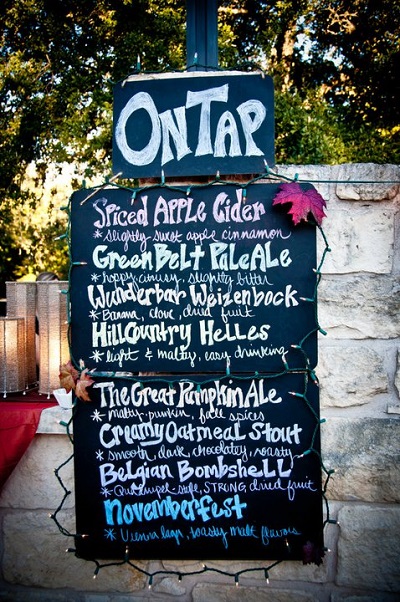 ON TAP
Spiced APPLE Cider
* slightly sweet apple cinnamon
Green Belt Pale Ale
* hoppy, citrusy, slightly bitter
Wunderbar Weizenbock
* Banana, clove, dried fruit
Hill Country Helles
* light & malty, easy drinking
The Great Pumpkin Ale
* malty, pumkin, fall spices
Creamy Oatmeal Stout
* smooth, dark, chocolatey, roasty
Belgian Bombshell
* style, STRONG, dried fruit
Novemberfest
* Vienna lager, toasty malt flavors